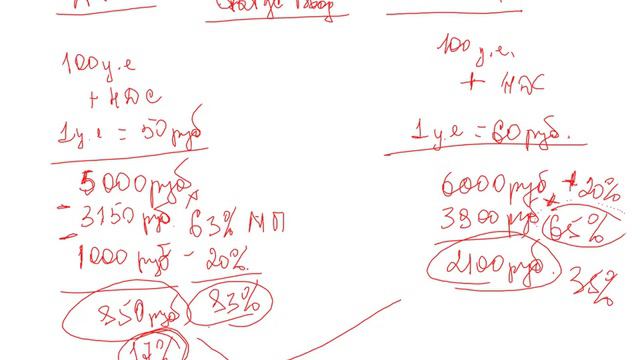 100 у.е
+ НДС
1 у.е = 50 руб
5000 руб
- 3150 руб. 63% МП
- 1000 руб - 20%.
850 руб 83%
17%
100 у.е.
+ НДС
1 у.е = 60 руб.
6000 руб + 20%
3800 руб 65%
2100 руб. 35%